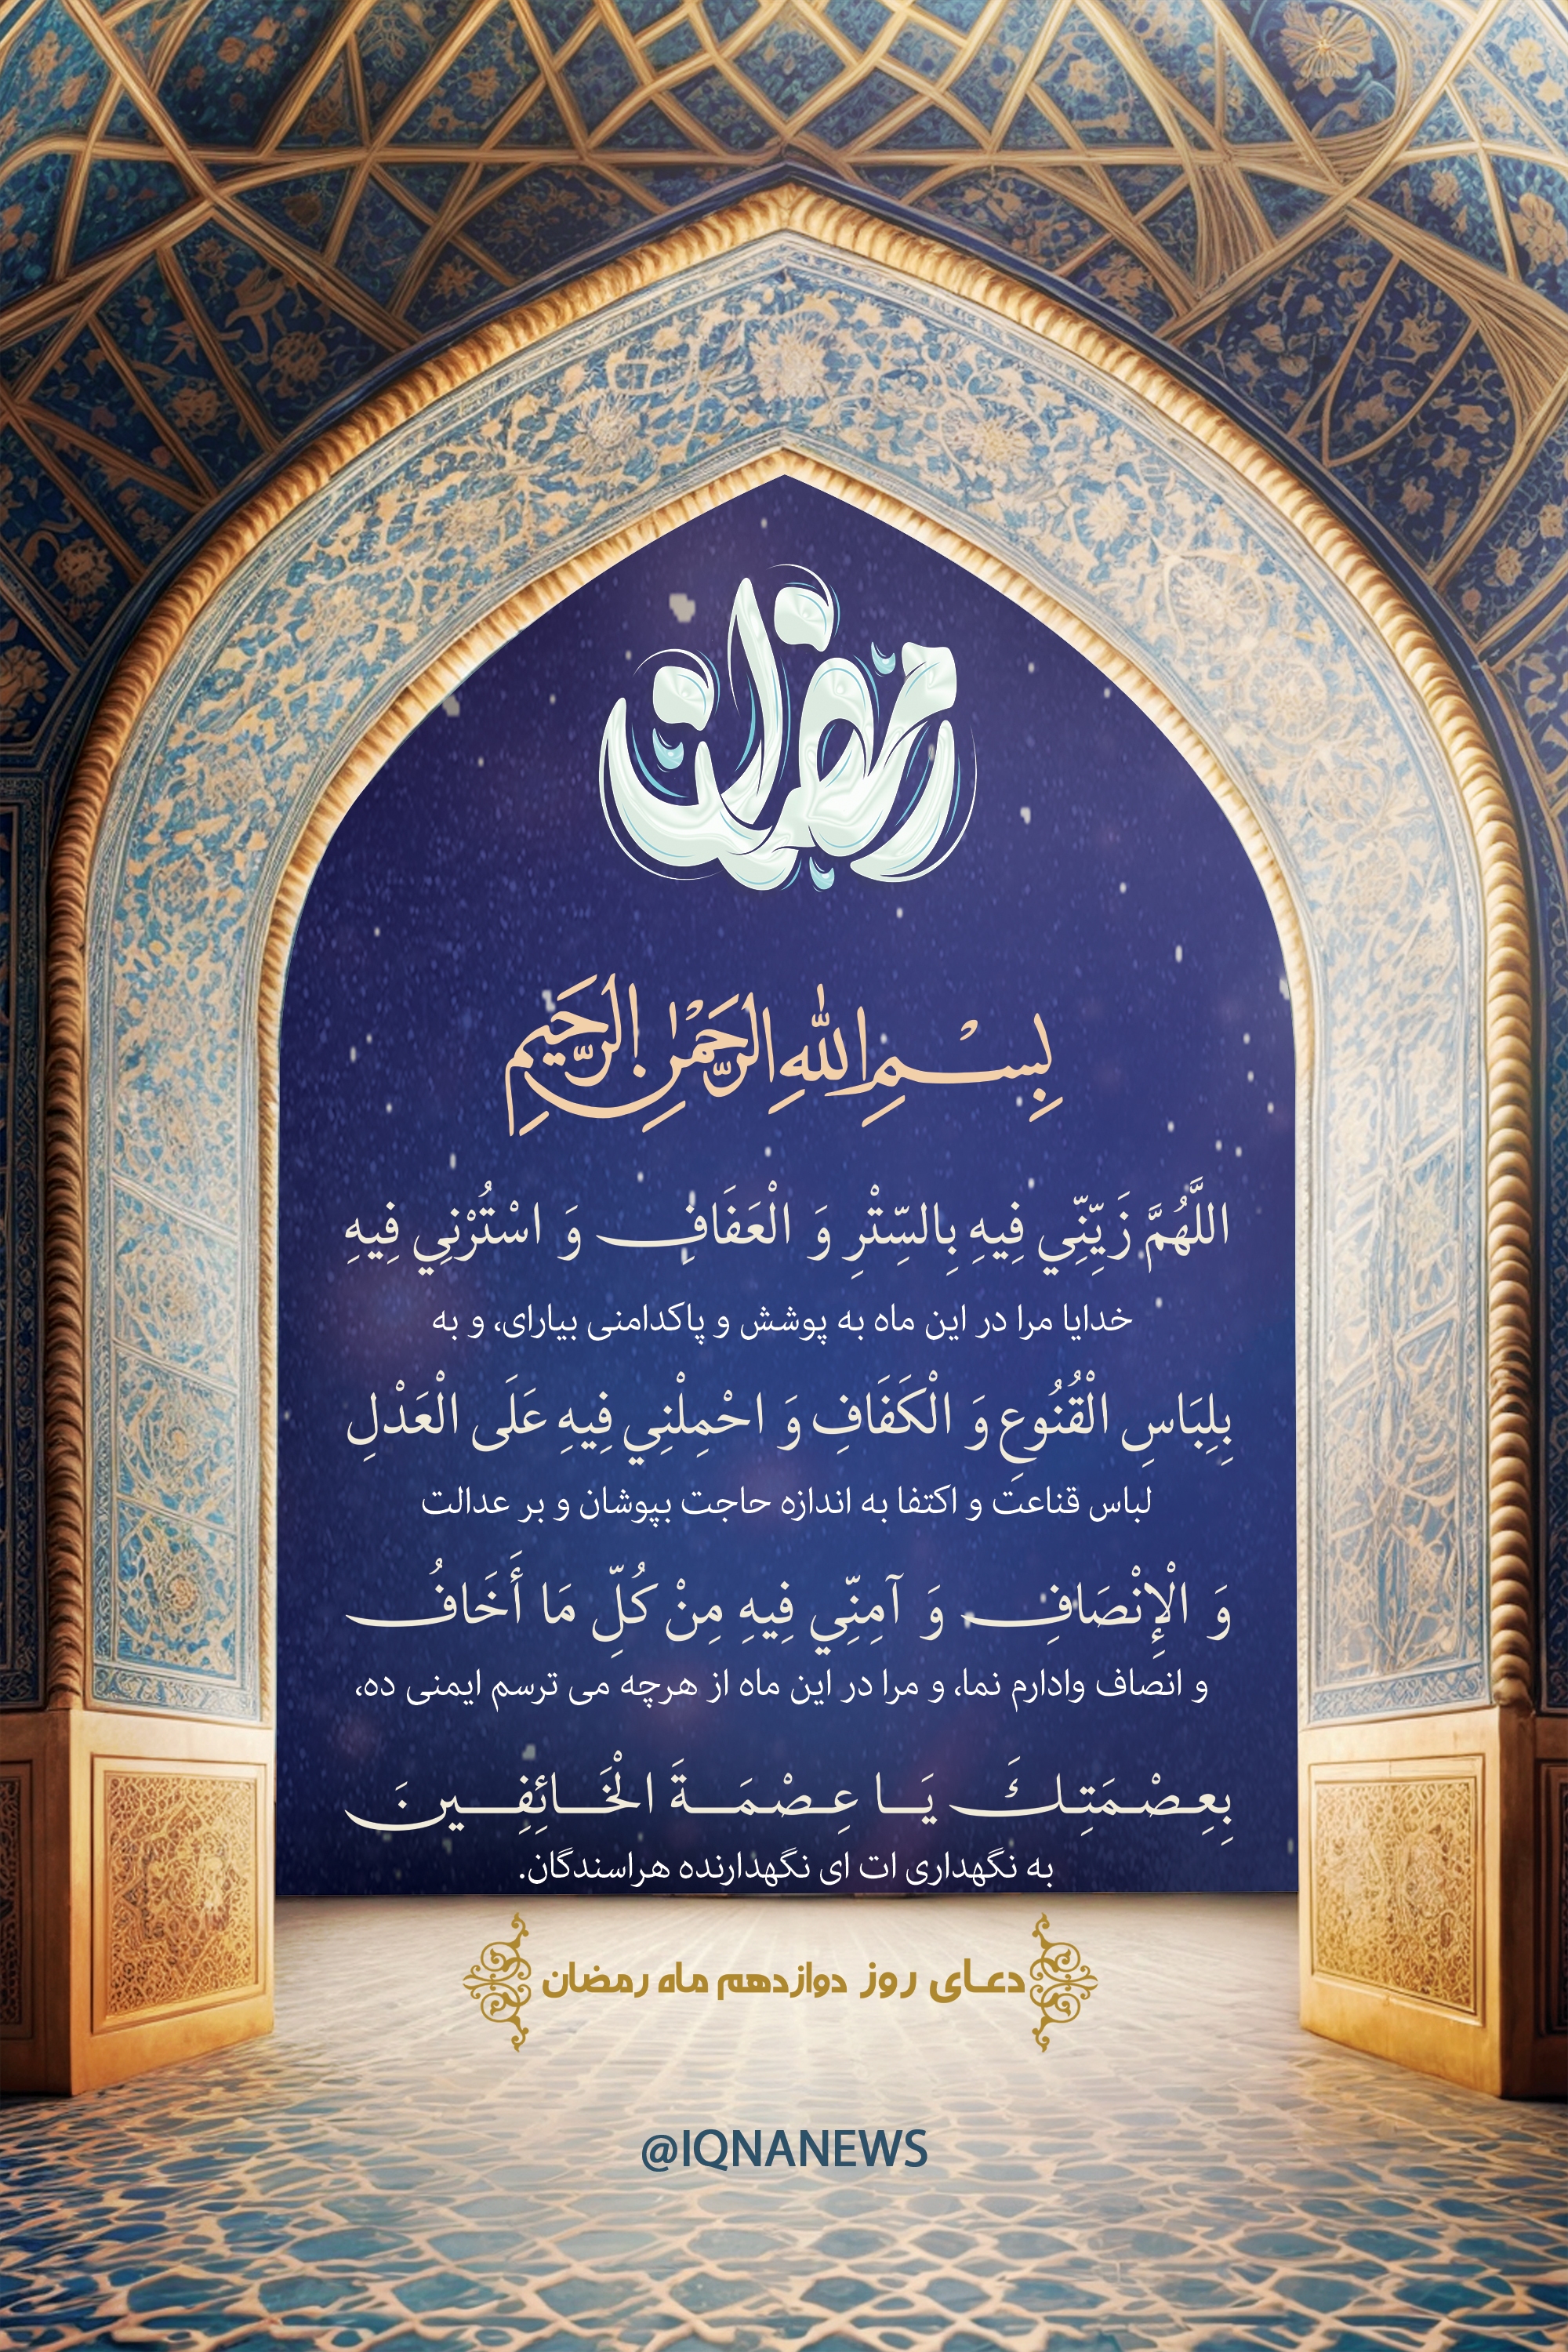 رمضان
بِسْمِ اللهِ الرَّحْمٰنِ الرَّحِيمِ
اللَّهُمَّ زَيِّنِّي فِيهِ بِالسِّتْرِ وَ الْعَفَافِ وَ اسْتُرْنِي فِيهِ
خدایا مرا در این ماه به پوشش و پاکدامنی بیارای، و به
بِلِبَاسِ الْقُنُوعِ وَ الْكَفَافِ وَ احْمِلْنِي فِيهِ عَلَى الْعَدْلِ
لباس قناعت و اکتفا به اندازه حاجت بپوشان و بر عدالت
وَ الْإِنْصَافِ وَ آمِنِّي فِيهِ مِنْ كُلِّ مَا أَخَافُ
و انصاف وادارم نما، و مرا در این ماه از هرچه می ترسم ایمنی ده،
بِعِصْمَتِكَ يَا عِصْمَةَ الْخَائِفِينَ
به نگهداری ات ای نگهدارنده هراسندگان.
دعای روز دوازدهم ماه رمضان
@IQNANEWS